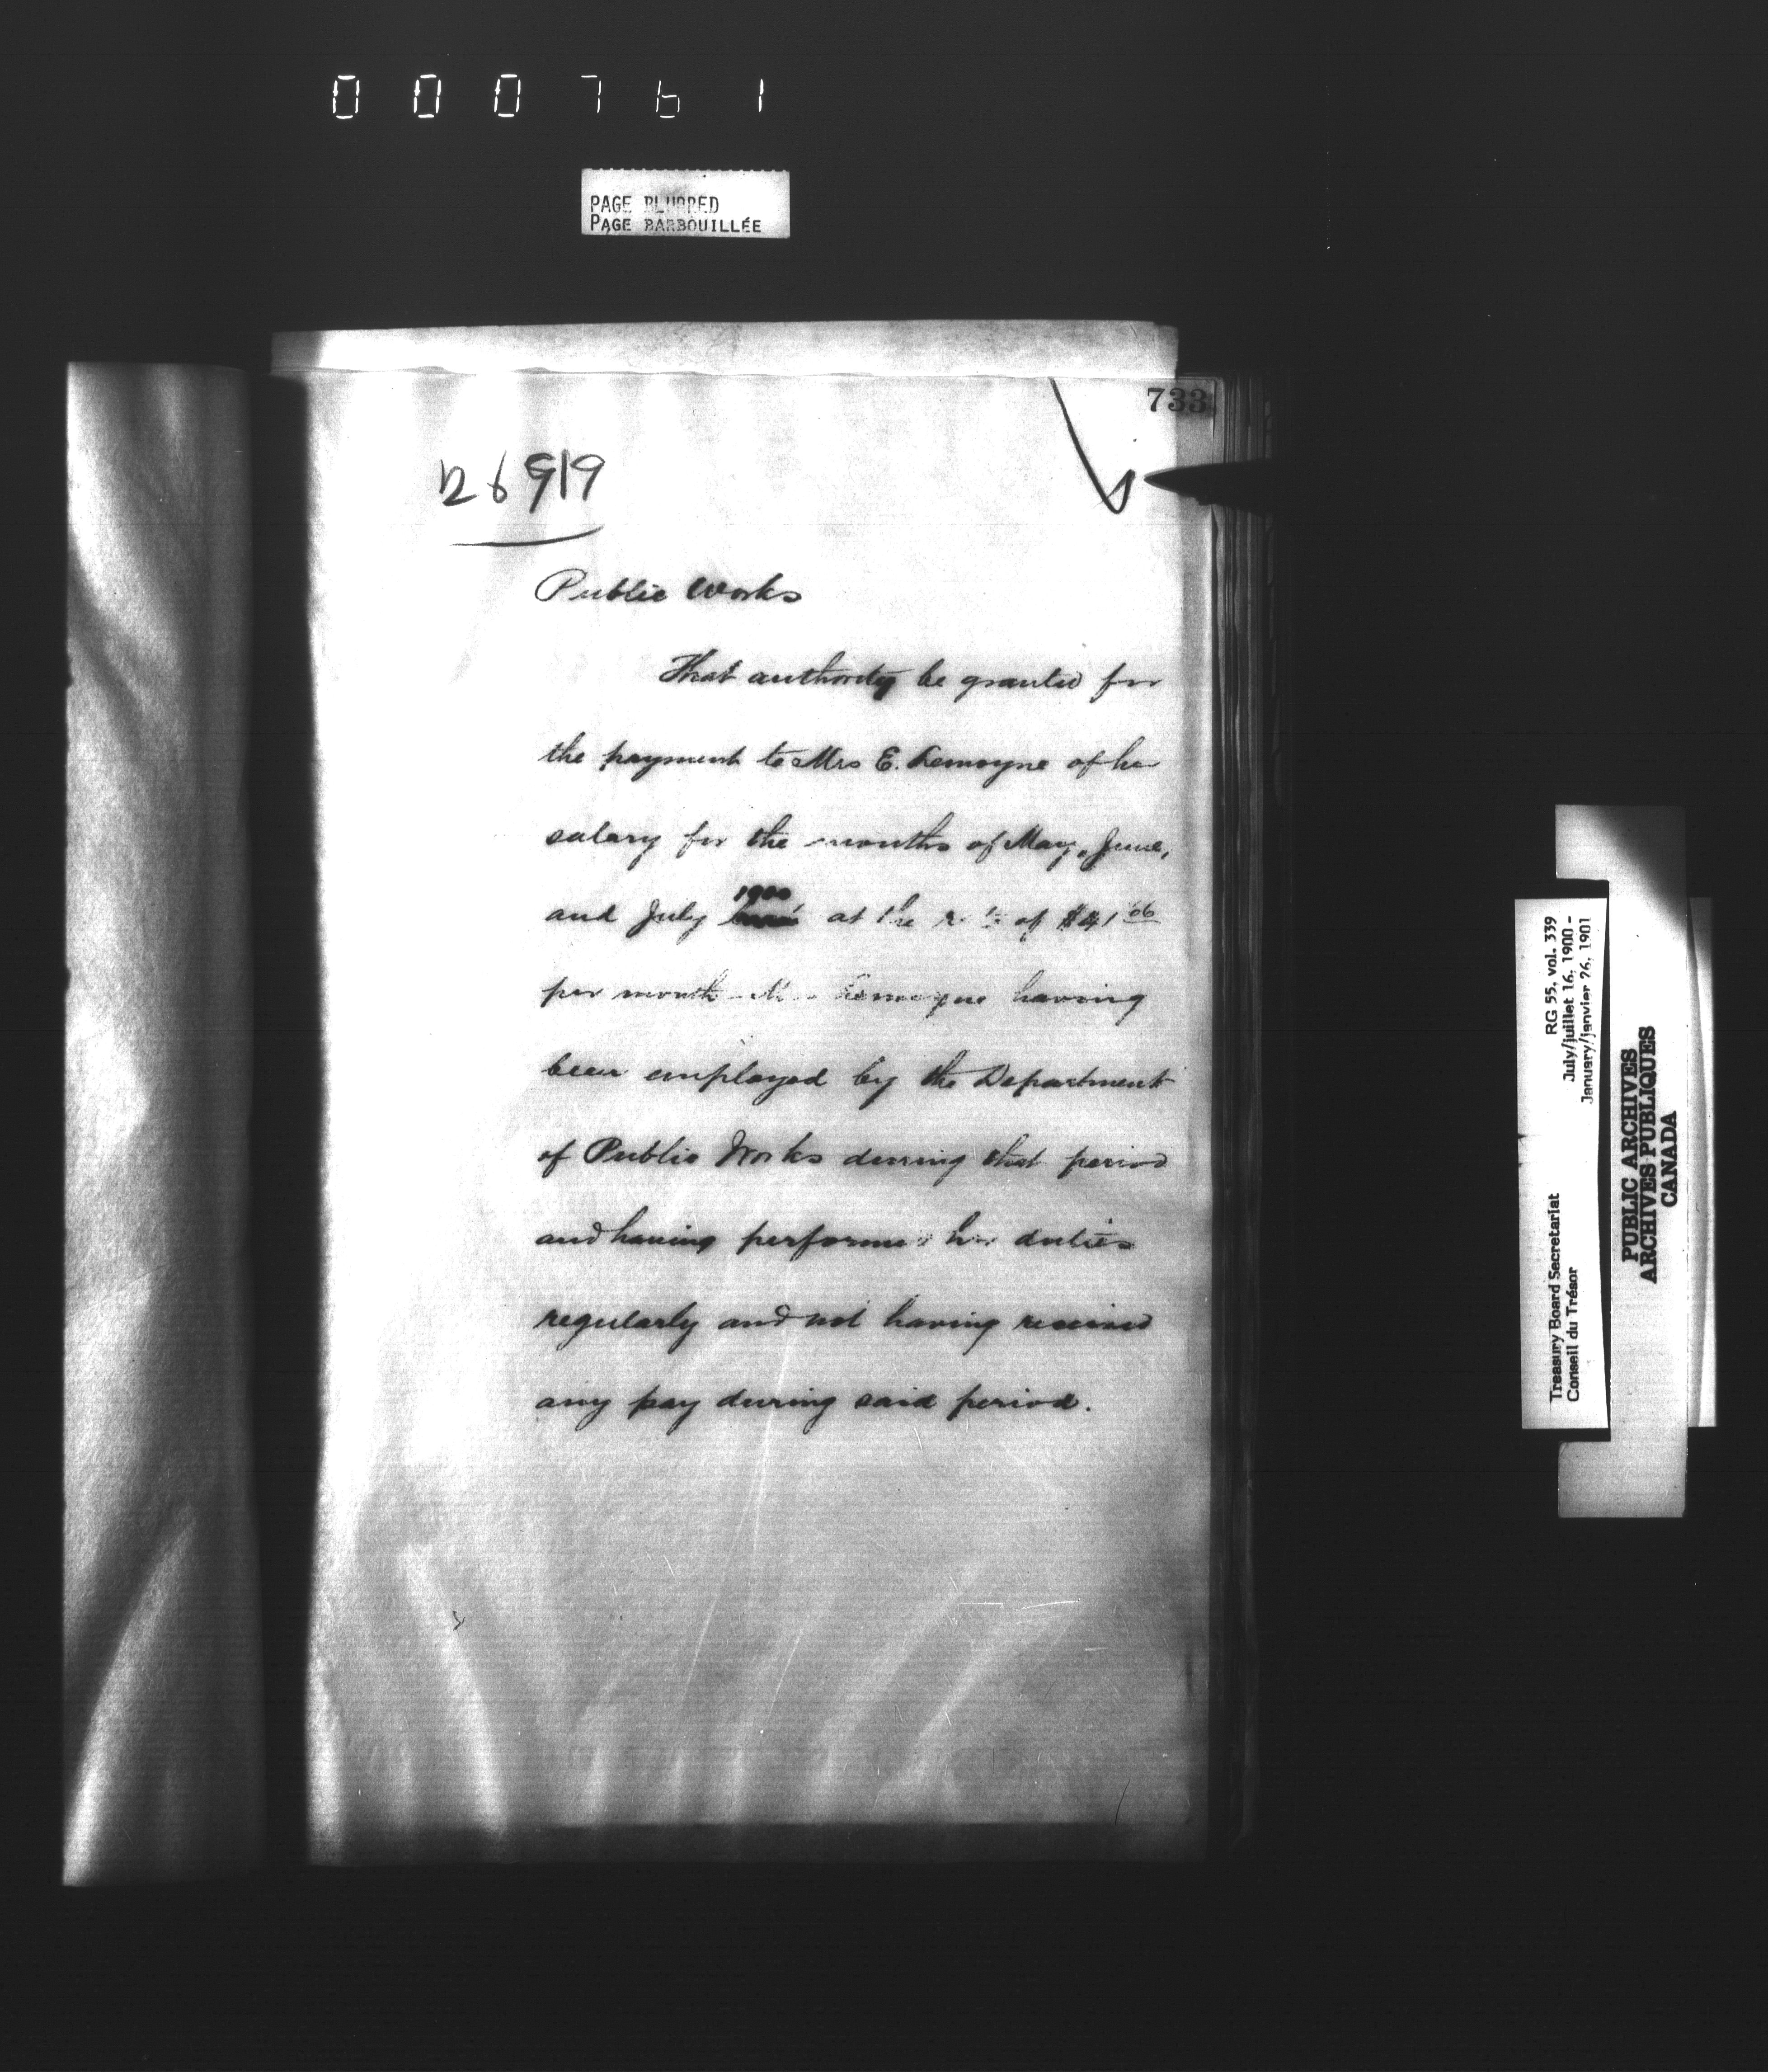 000761
PAGE BLURRED
PAGE BARBOUILLÉE
733
26919
Public Works
That authority be granted for
the payment to Mrs E. Lemoyne of her
salary for the months of May, June,
and July 1900 at the rate of $41 06
per month - Mrs Lemoyne having
been employed by the Department
of Public Works during that period
and having performed her duties
regularly and not having received
any pay during said period.
Treasury Board Secretariat RG 55, vol. 339
Conseil du Trésor July/juillet 16, 1900 -
January/janvier 26, 1901
PUBLIC ARCHIVES
ARCHIVES PUBLIQUES
CANADA